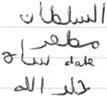 السلطان
مظفر
شاه date
خلد الله